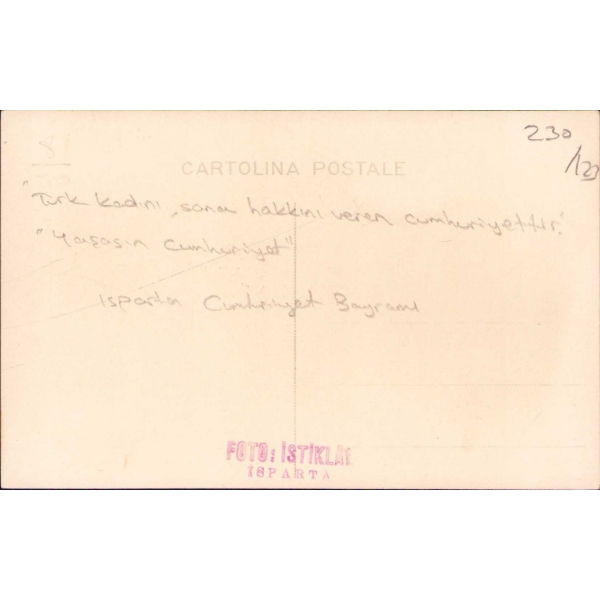 230
/123
CARTOLINA POSTALE
"Türk kadını, sana hakkını veren cumhuriyettir."
"Yaşasın Cumhuriyet"
Isparta Cumhuriyet Bayramı
FOTO: İSTİKLAL
ISPARTA